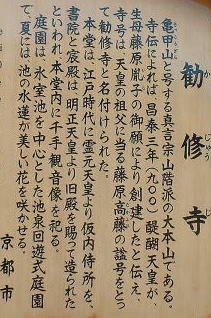 勧修寺
か じゅう じ
亀甲山と号する真言宗山階派の大本山である。
寺伝によれば、昌泰三年(九〇〇)醍醐天皇が、
生母藤原胤子の御願により創建したと伝え、
寺号は天皇の祖父に当る藤原高藤の諡号をとっ
て勧修寺と名付けられた。
本堂は、江戸時代に霊元天皇より仮内侍所を、
書院と宸殿は、明正天皇より旧殿を賜って造られた
といわれ、本堂内に千手観音像を祀る。
庭園は、氷室池を中心とした池泉回遊式庭園
で、夏には、池の水蓮が美しい花を咲かせる。
京都市